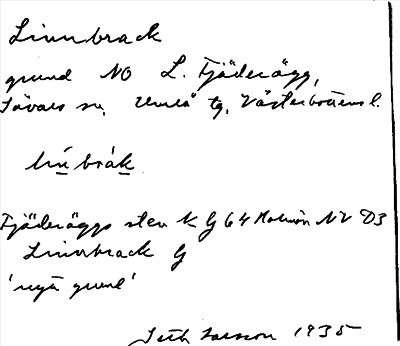 Linnbrack
grund NO L. Fjäderägg,
Sävars sn, Umeå tg, Västerbottens l.
Fjäderäggs sten k G 64 Holmön NV D3
Linnbrack G
'nya grund'
Seth Larsson 1935